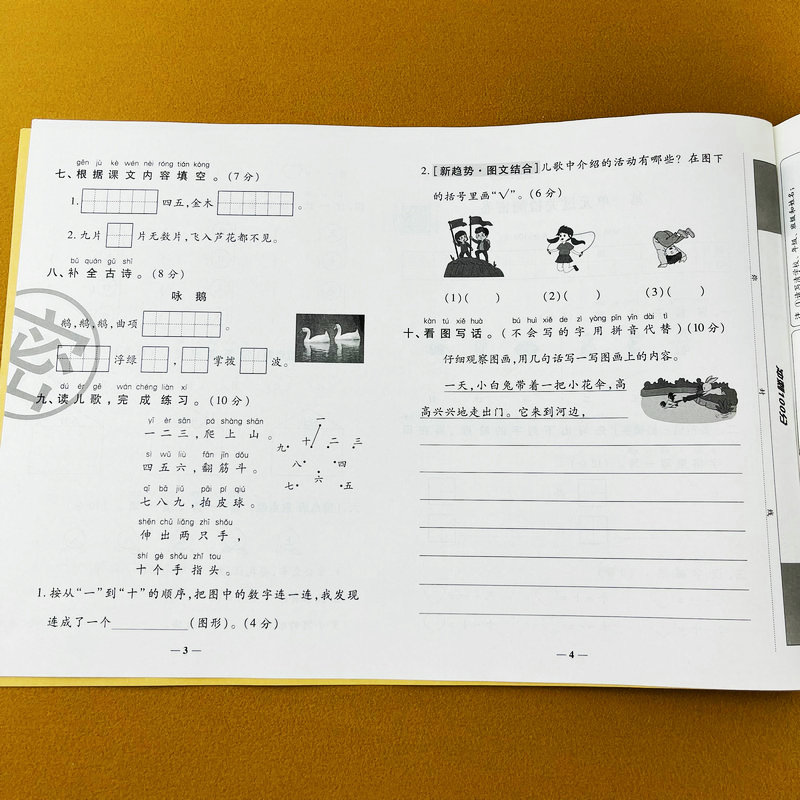 gēn jù kè wén nèi róng tián kòng
七、根据课文内容填空。(7分)
1. 四五,金木 。
2.九片 片无数片,飞入芦花都不见。
bǔ quán gǔ shī
八、补全古诗。(8分)
咏 鹅
鹅,鹅,鹅,曲项 。
浮绿 , 掌拨 波。
密
dú ér gē wán chéng liàn xí
九、读儿歌,完成练习。(10分)
yī èr sān pá shàng shān
一二三,爬上山。
sì wǔ liù fān jīn dǒu
四五六,翻筋斗。
qī bā jiǔ pāi pí qiú
七八九,拍皮球。
shēn chū liǎng zhī shǒu
伸出两只手,
shí gè shǒu zhǐ tou
十个手指头。
一
九 十 二 三
八 四
六
七 五
1.按从“一”到“十”的顺序,把图中的数字连一连,我发现
连成了一个 (图形)。(4分)
— 3 —
2.[新趋势·图文结合]儿歌中介绍的活动有哪些?在图下
的括号里画“√”。(6分)
(1)( ) (2)( ) (3)( )
kàn tú xiě huà bú huì xiě de zì yòng pīn yīn dài tì
十、看图写话。(不会写的字用拼音代替)(10分)
仔细观察图画,用几句话写一写图画上的内容。
一天,小白兔带着一把小花伞,高
高兴兴地走出门。它来到河边,
— 4 —
封
线